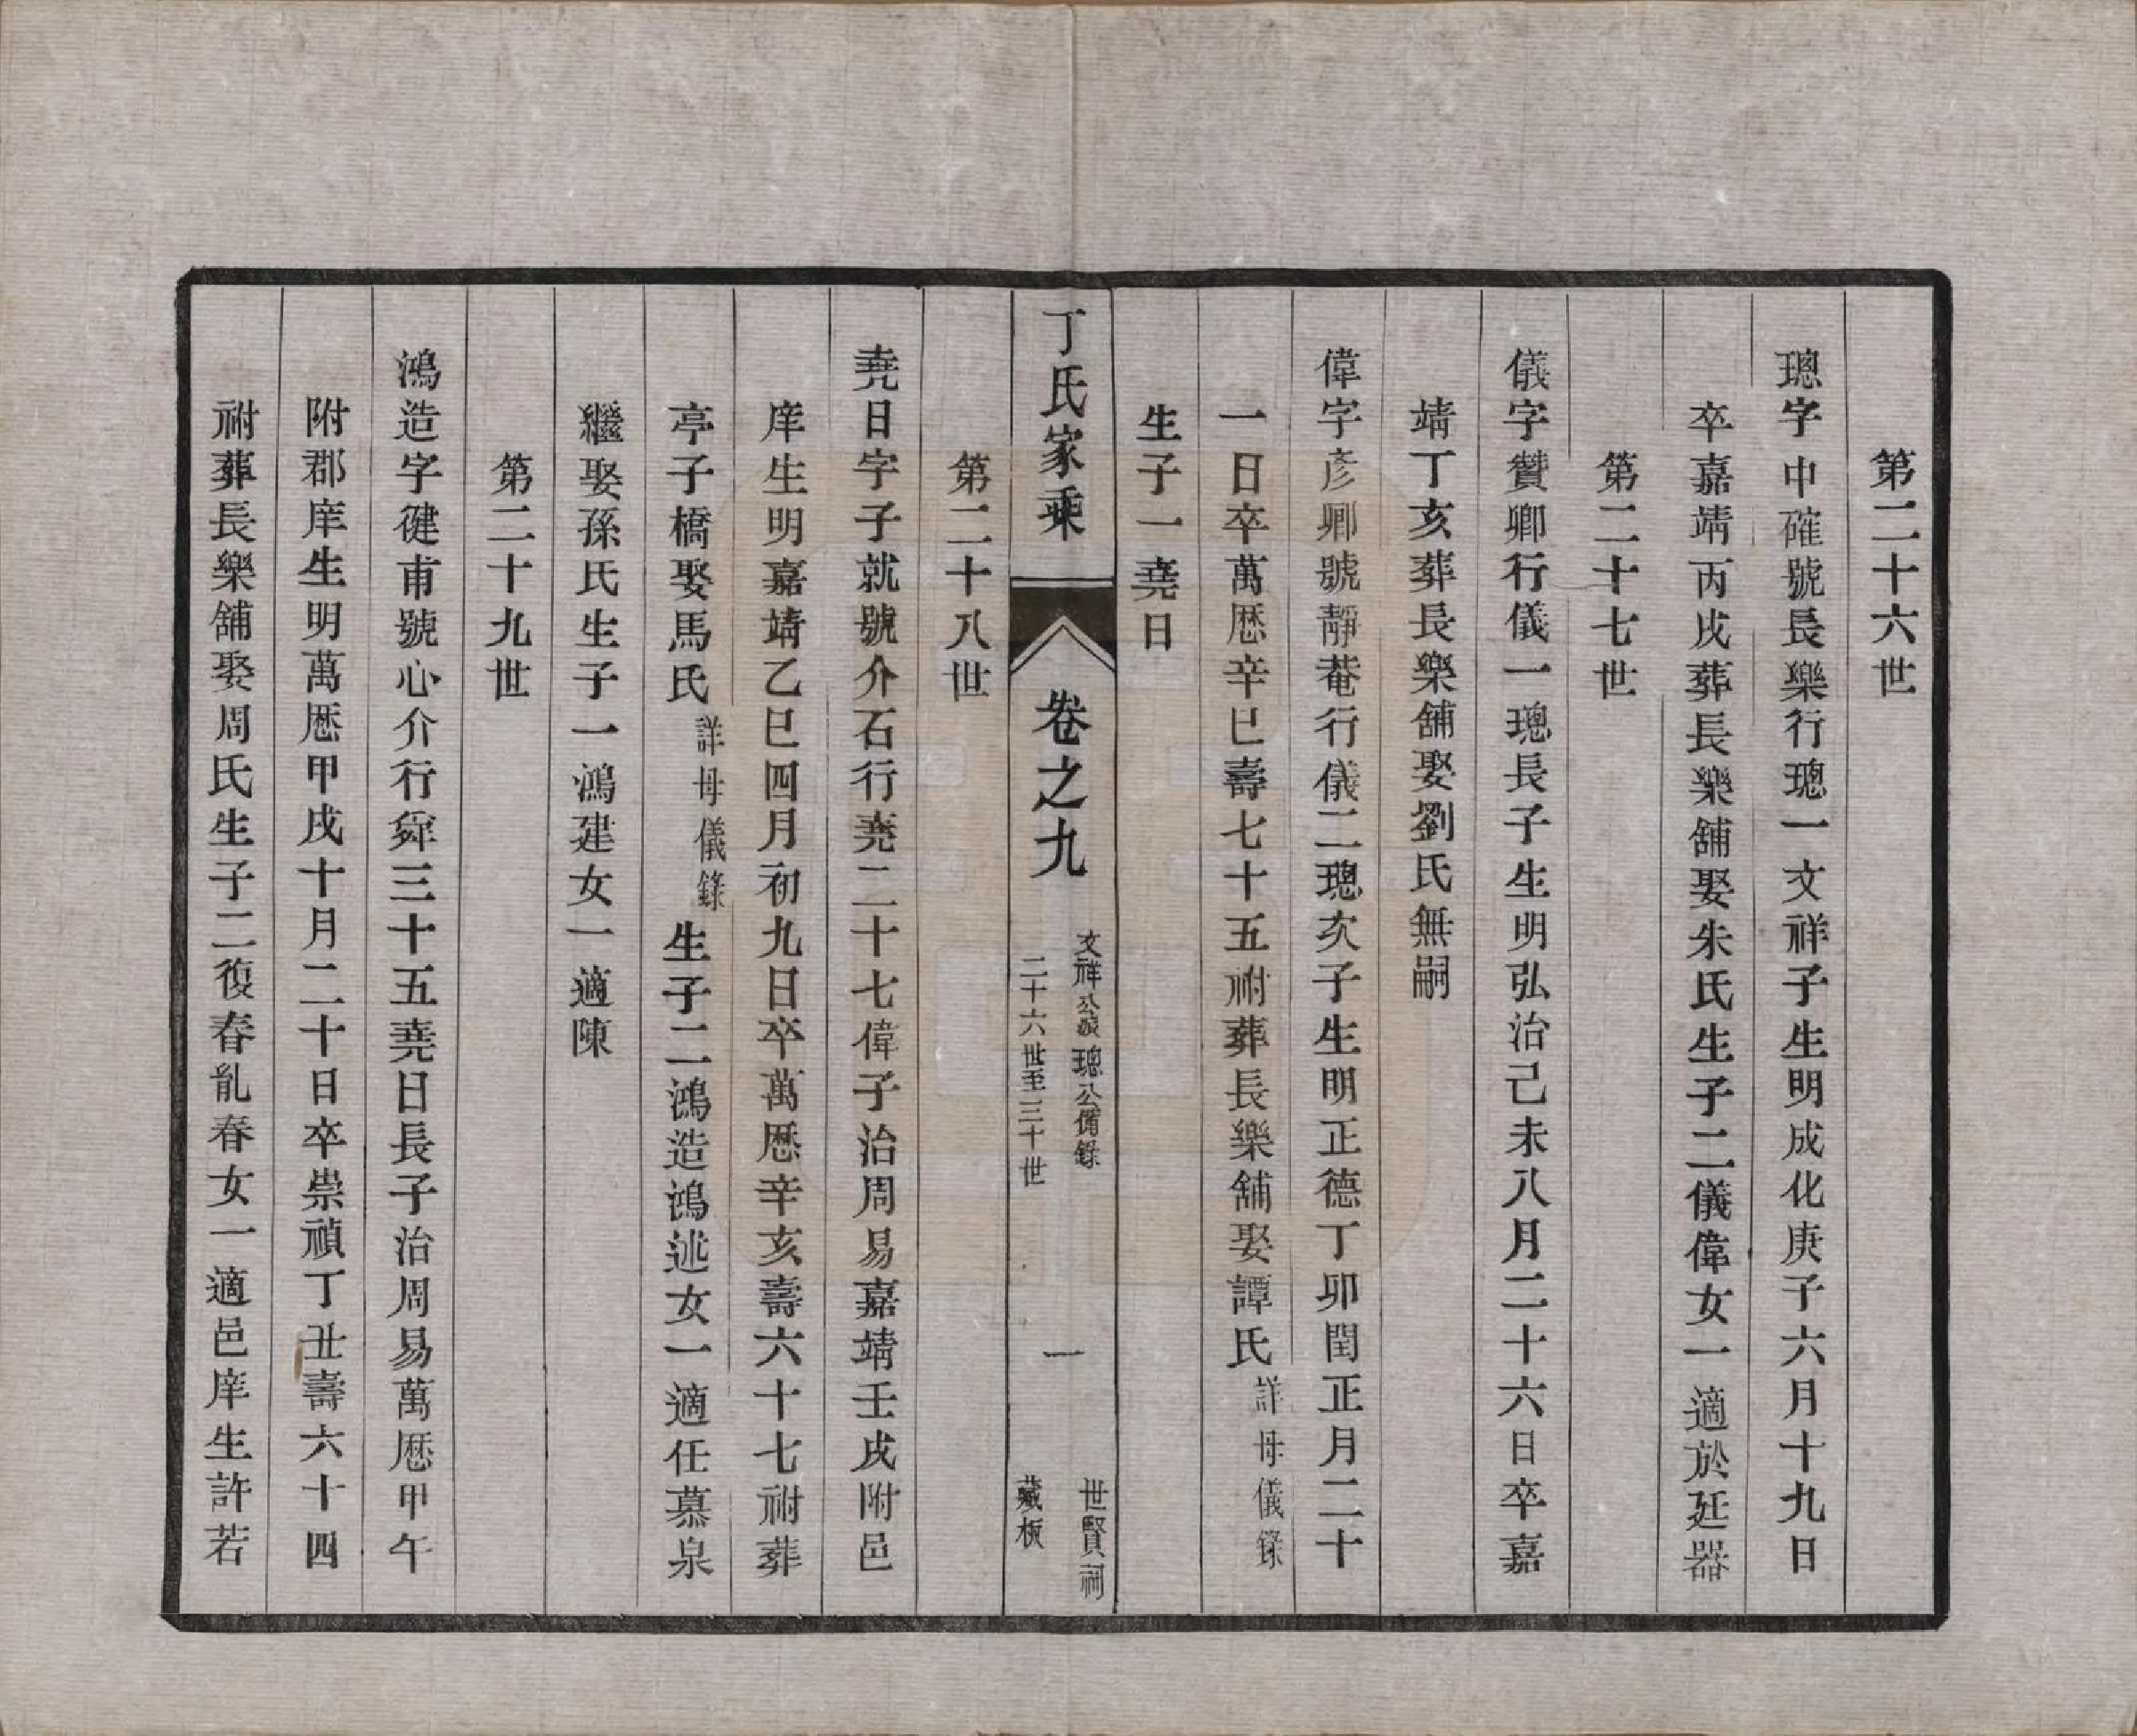 第二十六世
璁字中確號長樂行璁一文祥子生明成化庚子六月十九日
卒嘉靖丙戌葬長樂舖娶朱氏生子二儀偉女一適於廷器
第二十七世
儀字贊卿行儀一璁長子生明弘治己未八月二十六日卒嘉
靖丁亥葬長樂舖娶劉氏無嗣
偉字彥卿號靜菴行儀二璁次子生明正德丁卯閏正月二十
一日卒萬厯辛巳壽七十五祔葬長樂舖娶譚氏詳母儀錄
生子一堯日
丁氏家乘
卷之九
文祥公裔璁公備錄
二十六世至三十世
一
世賢祠
藏板
第二十八世
堯日字子就號介石行堯二十七偉子治周易嘉靖壬戌附邑
庠生明嘉靖乙巳四月初九日卒萬厯辛亥壽六十七祔葬
亭子橋娶馬氏詳母儀錄生子二鴻造鴻述女一適任慕泉
繼娶孫氏生子一鴻建女一適陳
第二十九世
鴻造字健甫號心介行舜三十五堯日長子治周易萬厯甲午
附郡庠生明萬厯甲戌十月二十日卒崇禎丁丑壽六十四
祔葬長樂舖娶周氏生子二復春胤春女一適邑庠生許若